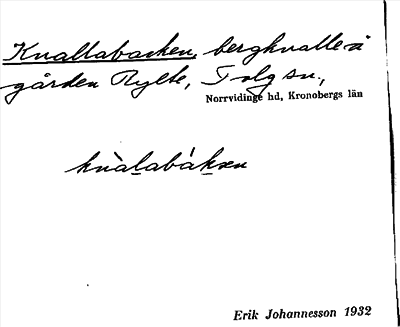 Knallabacken, bergknalle å
gården Rylte, Tolg sn.,
Norrvidinge hd, Kronobergs län
knàlabákən
Erik Johannesson 1932